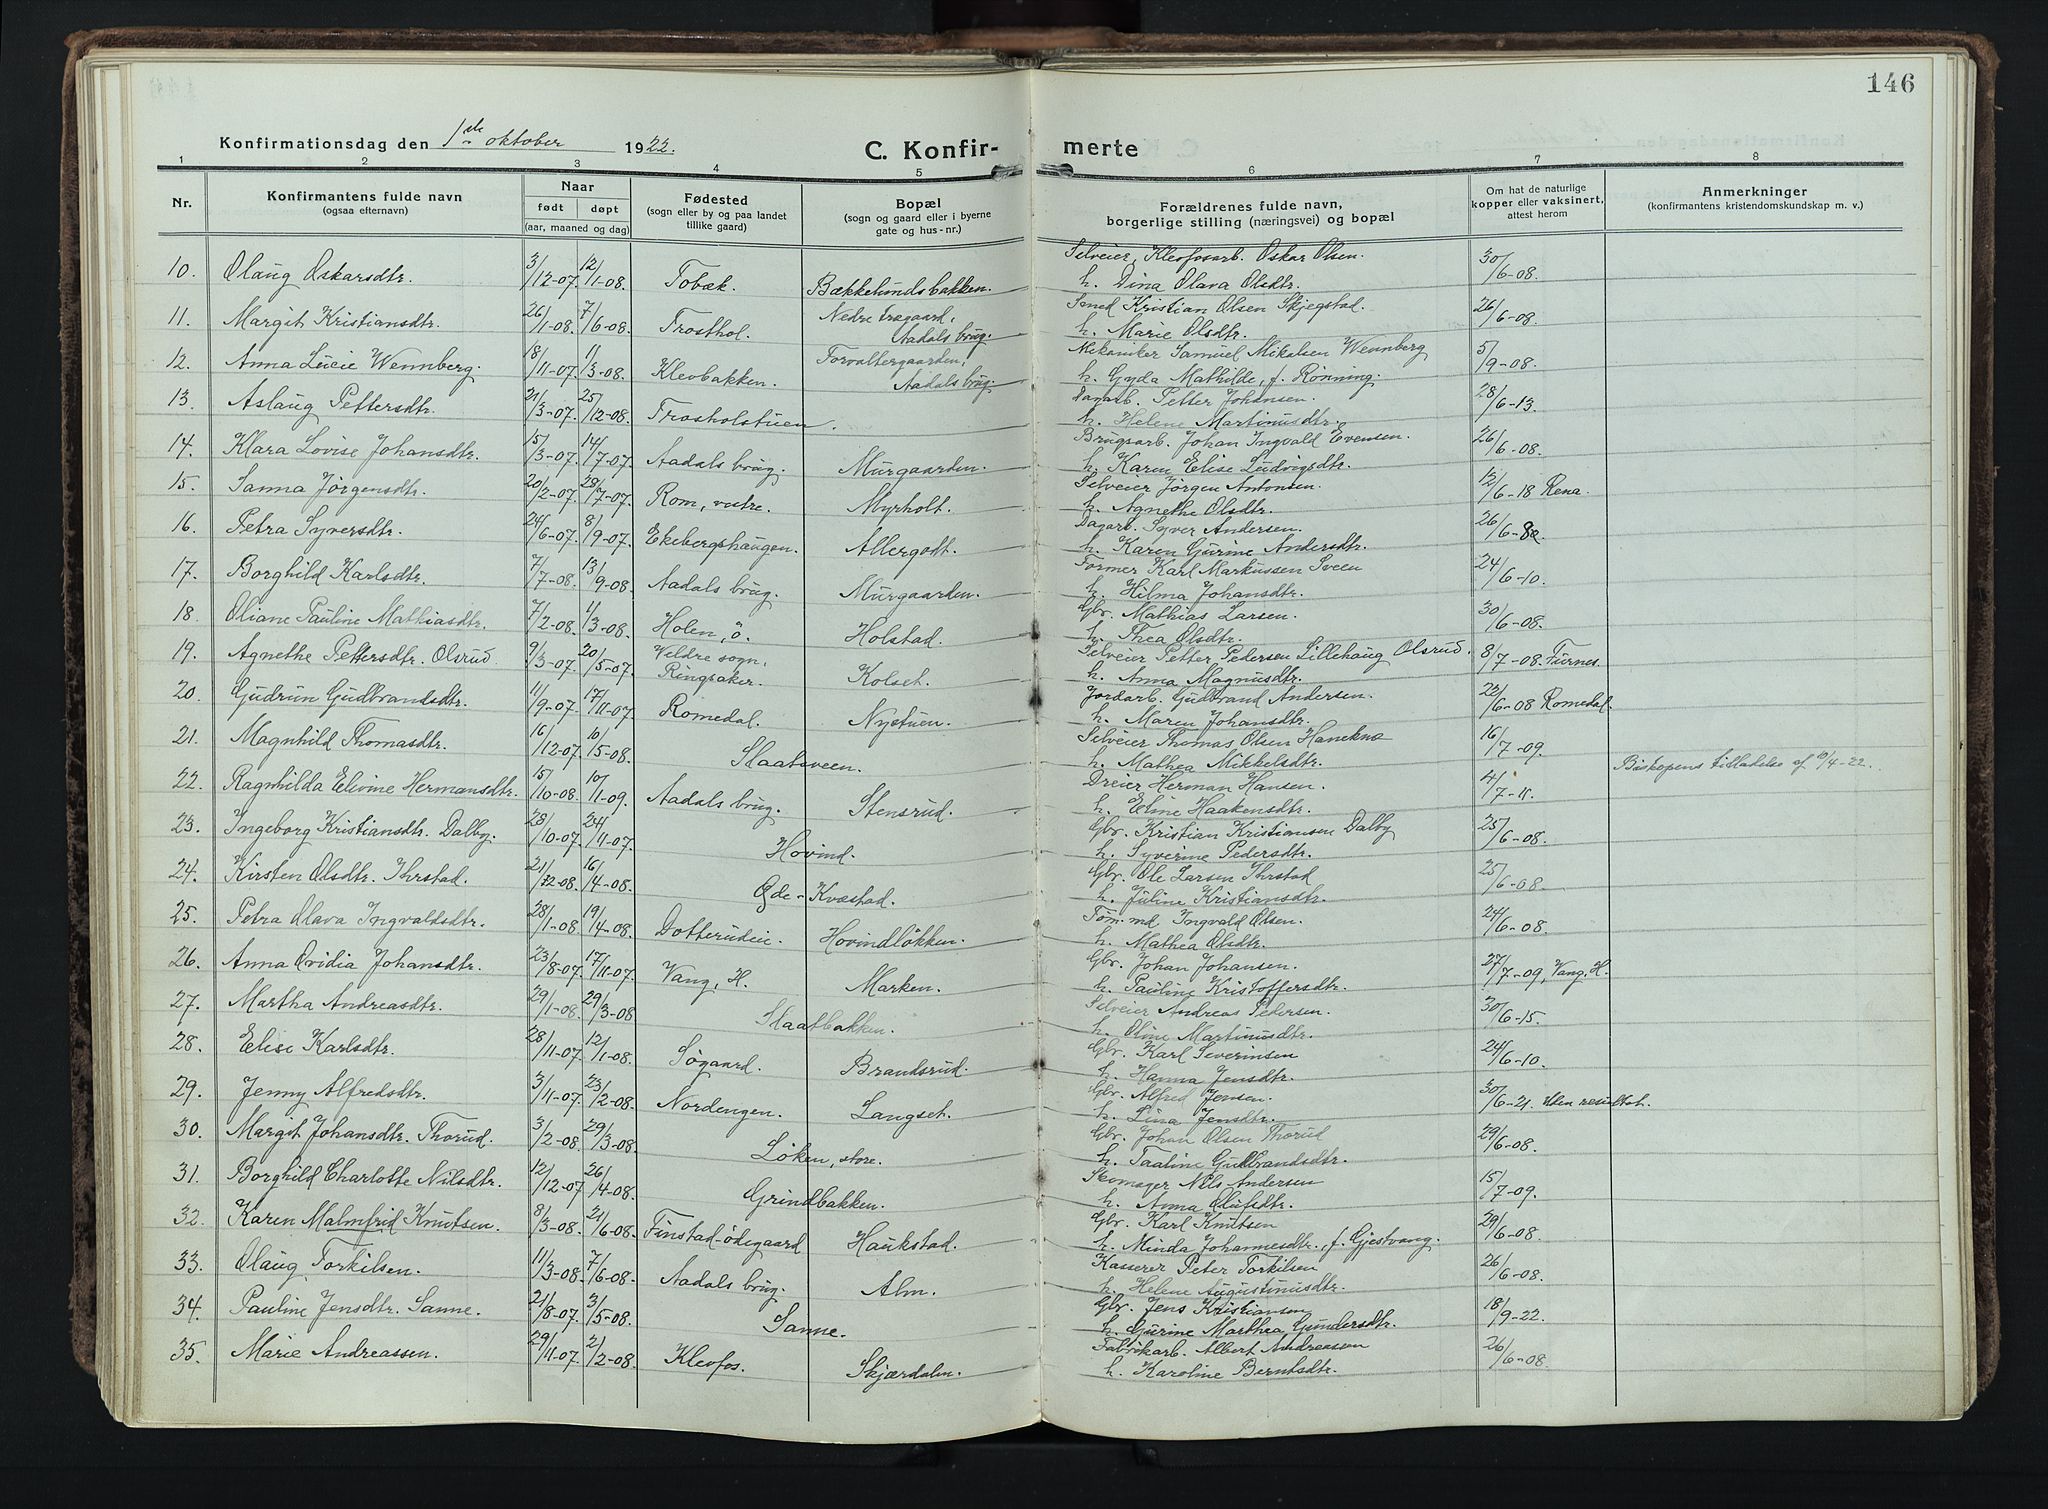 146
Konfirmationsdag den 1ste oktober 1922.
C. Konfirmerte
1 2 3 4 5 6 7 8
Nr. Konfirmantens fulde navn (ogsaa efternavn) Naar født døpt (aar, maaned og dag) Fødested (sogn eller by og paa landet tillike gaard) Bopæl (sogn og gaard eller i byerne gate og hus-nr.) Forældrenes fulde navn, borgerlige stilling (næringsvei) og bopæl Om hat de naturlige kopper eller vaksinert, attest herom Anmerkninger (konfirmantens kristendomskundskap m. v.)
10. Olaug Oskarsdtr. 3/12-07. 12/1-08. Tobæk. Bækkelundsbakken. Selveier, Klevfosarb. Oskar Olsen. 30/6-08.
h. Dina Olava Olsdtr.
11. Margit Kristiansdtr. 26/1-08. 7/6-08. Trosthol. Nedre tregaard, Aadals brug. Smed Kristian Olsen Skjegstad. 26/6-08.
h. Marie Olsdtr.
12. Anna Lucie Wennberg. 18/11-07. 11/3-08. Klevbakken. Forvaltergaarden, Aadals brug. Mekaniker Samuel Mikalsen Wennberg 5/9-08.
h. Gyda Mathilde, f. Rønning.
13. Aslaug Pettersdtr. 21/3-07. 25/12-08. Trosholstuen. Dagarb. Petter Johansen. 28/6-13.
h. Helene Martinusdtr.
14. Klara Lovise Johansdtr. 15/3-07. 14/7-07. Aadals brug. Murgaarden. Brugsarb. Johan Ingvald Evensen. 26/6-08.
h. Karen Elise Ludvigsdtr.
15. Sanna Jørgensdtr. 20/2-07. 28/7-07. Rom, vestre. Myrholt. Selveier Jørgen Antonsen. 12/6-18 Rena.
h. Agnethe Olsdtr.
16. Petra Syversdtr. 24/6-07. 8/9-07. Ekebergshaugen. Allergodt. Dagarb. Syver Andersen. 26/6-
h. Karen Gurine Andersdtr.
17. Borghild Karlsdtr. 7/7-08. 13/9-08. Aadals brug. Murgaarden. Former Karl Markussen Sveen 24/6-10.
h. Hilma Johansdtr.
18. Oliane Pauline Mathiasdtr. 7/2-08. 1/3-08. Holen, ö. Holstad. Gbr. Mathias Larsen. 30/6-08.
h. Thea Olsdtr.
19. Agnethe Pettersdtr. Olsrud 9/3-07. 20/5-07. Veldre sogn, Ringsaker. Kolset. Selveier Petter Pedersen Lillehaug Olsrud. 8/7-08. Furnes.
h. Anna Magnusdtr.
20. Gudrun Gudbrandsdtr. 11/9-07. 17/11-07. Romedal. Nystuen. Jordarb. Gudbrand Andersen. 22/6-08 Romedal.
h. Maren Johansdtr.
21. Magnhild Thomasdtr. 16/12-07. 10/5-08. Slaatsveen. Selveier Thomas Olsen Hanekne 16/7-09.
h. Mathea Mikkelsdtr.
22. Ragnhilda Elivine Hermansdtr. 15/10-08. 10/1-09. Aadals brug. Stensrud. Dreier Herman Hansen. 4/7-11. Biskopens tilladelse af 10/4-22.
h. Eline Haakensdtr.
23. Ingeborg Kristiansdtr. Dalby. 28/10-07. 24/11-07. Hovind. Gbr. Kristian Kristiansen Dalby 25/6-08.
h. Syverine Pedersdtr.
24. Kirsten Olsdtr. Ihrstad. 21/12-08. 16/4-08. Øde-Kvæstad. Gbr. Ole Larsen Ihrstad 25/6-08.
h. Juline Kristiansdtr.
25. Petra Olava Ingvaldsdtr. 28/1-08. 19/4-08. Dotterudeie. Hovindløkken. Töm.md. Ingvald Olsen. 24/6-08.
h. Mathea Olsdtr.
26. Anna Ovidia Johansdtr. 23/8-07. 17/11-07. Vang, H. Marken. Gbr. Johan Johansen. 27/7-09, Vang, H.
h. Pauline Kristoffersdtr.
27. Martha Andreasdtr. 29/1-08. 29/3-08 Slaatbakken. Selveier Andreas Pedersen. 30/6-15.
h. Oline Martinusdtr.
28. Elise Karlsdtr. 28/11-07. 12/1-08. Søgaard. Brandsrud. Gbr. Karl Severinsen 24/6-10.
h. Hanna Jensdtr.
29. Jenny Alfredsdtr. 3/11-07. 23/2-08. Nordengen. Langset. Gbr. Alfred Jensen. 30/6-21. Uden resultat.
h. Lina Jensdtr.
30. Margit Johansdtr. Thorud. 3/2-08. 29/3-08. Løken, store. Gbr. Johan Olsen Thorud 29/6-08.
h. Taaline Gudbrandsdtr.
31. Borghild Charlotte Nilsdtr. 12/12-07. 26/4-08. Grindbakken. Skomager Nils Andersen 15/7-09.
h. Anna Olufsdtr.
32. Karen Malmfrid Knutsen. 8/3-08. 21/6-08. Finstad-ødegaard Haukstad. Gbr. Karl Knutsen 29/6-08.
h. Minda Johannesdtr., f. Gjestvang.
33. Olaug Torkilsen. 11/3-08. 7/6-08. Aadals brug. Alm. Kasserer Peter Torkilsen 26/6-08.
h. Helene Augustinusdtr.
34. Pauline Jensdtr. Sanne. 21/8-07. 3/5-08. Sanne. Gbr. Jens Kristiansen 18/9-22.
h. Gurine Marthea Gundersdtr.
35. Marie Andreassen. 29/11-07. 2/2-08. Klevfos. Skjærdalen. Fabrikarb. Albert Andreassen 26/6-08.
h. Karoline Berntsdtr.